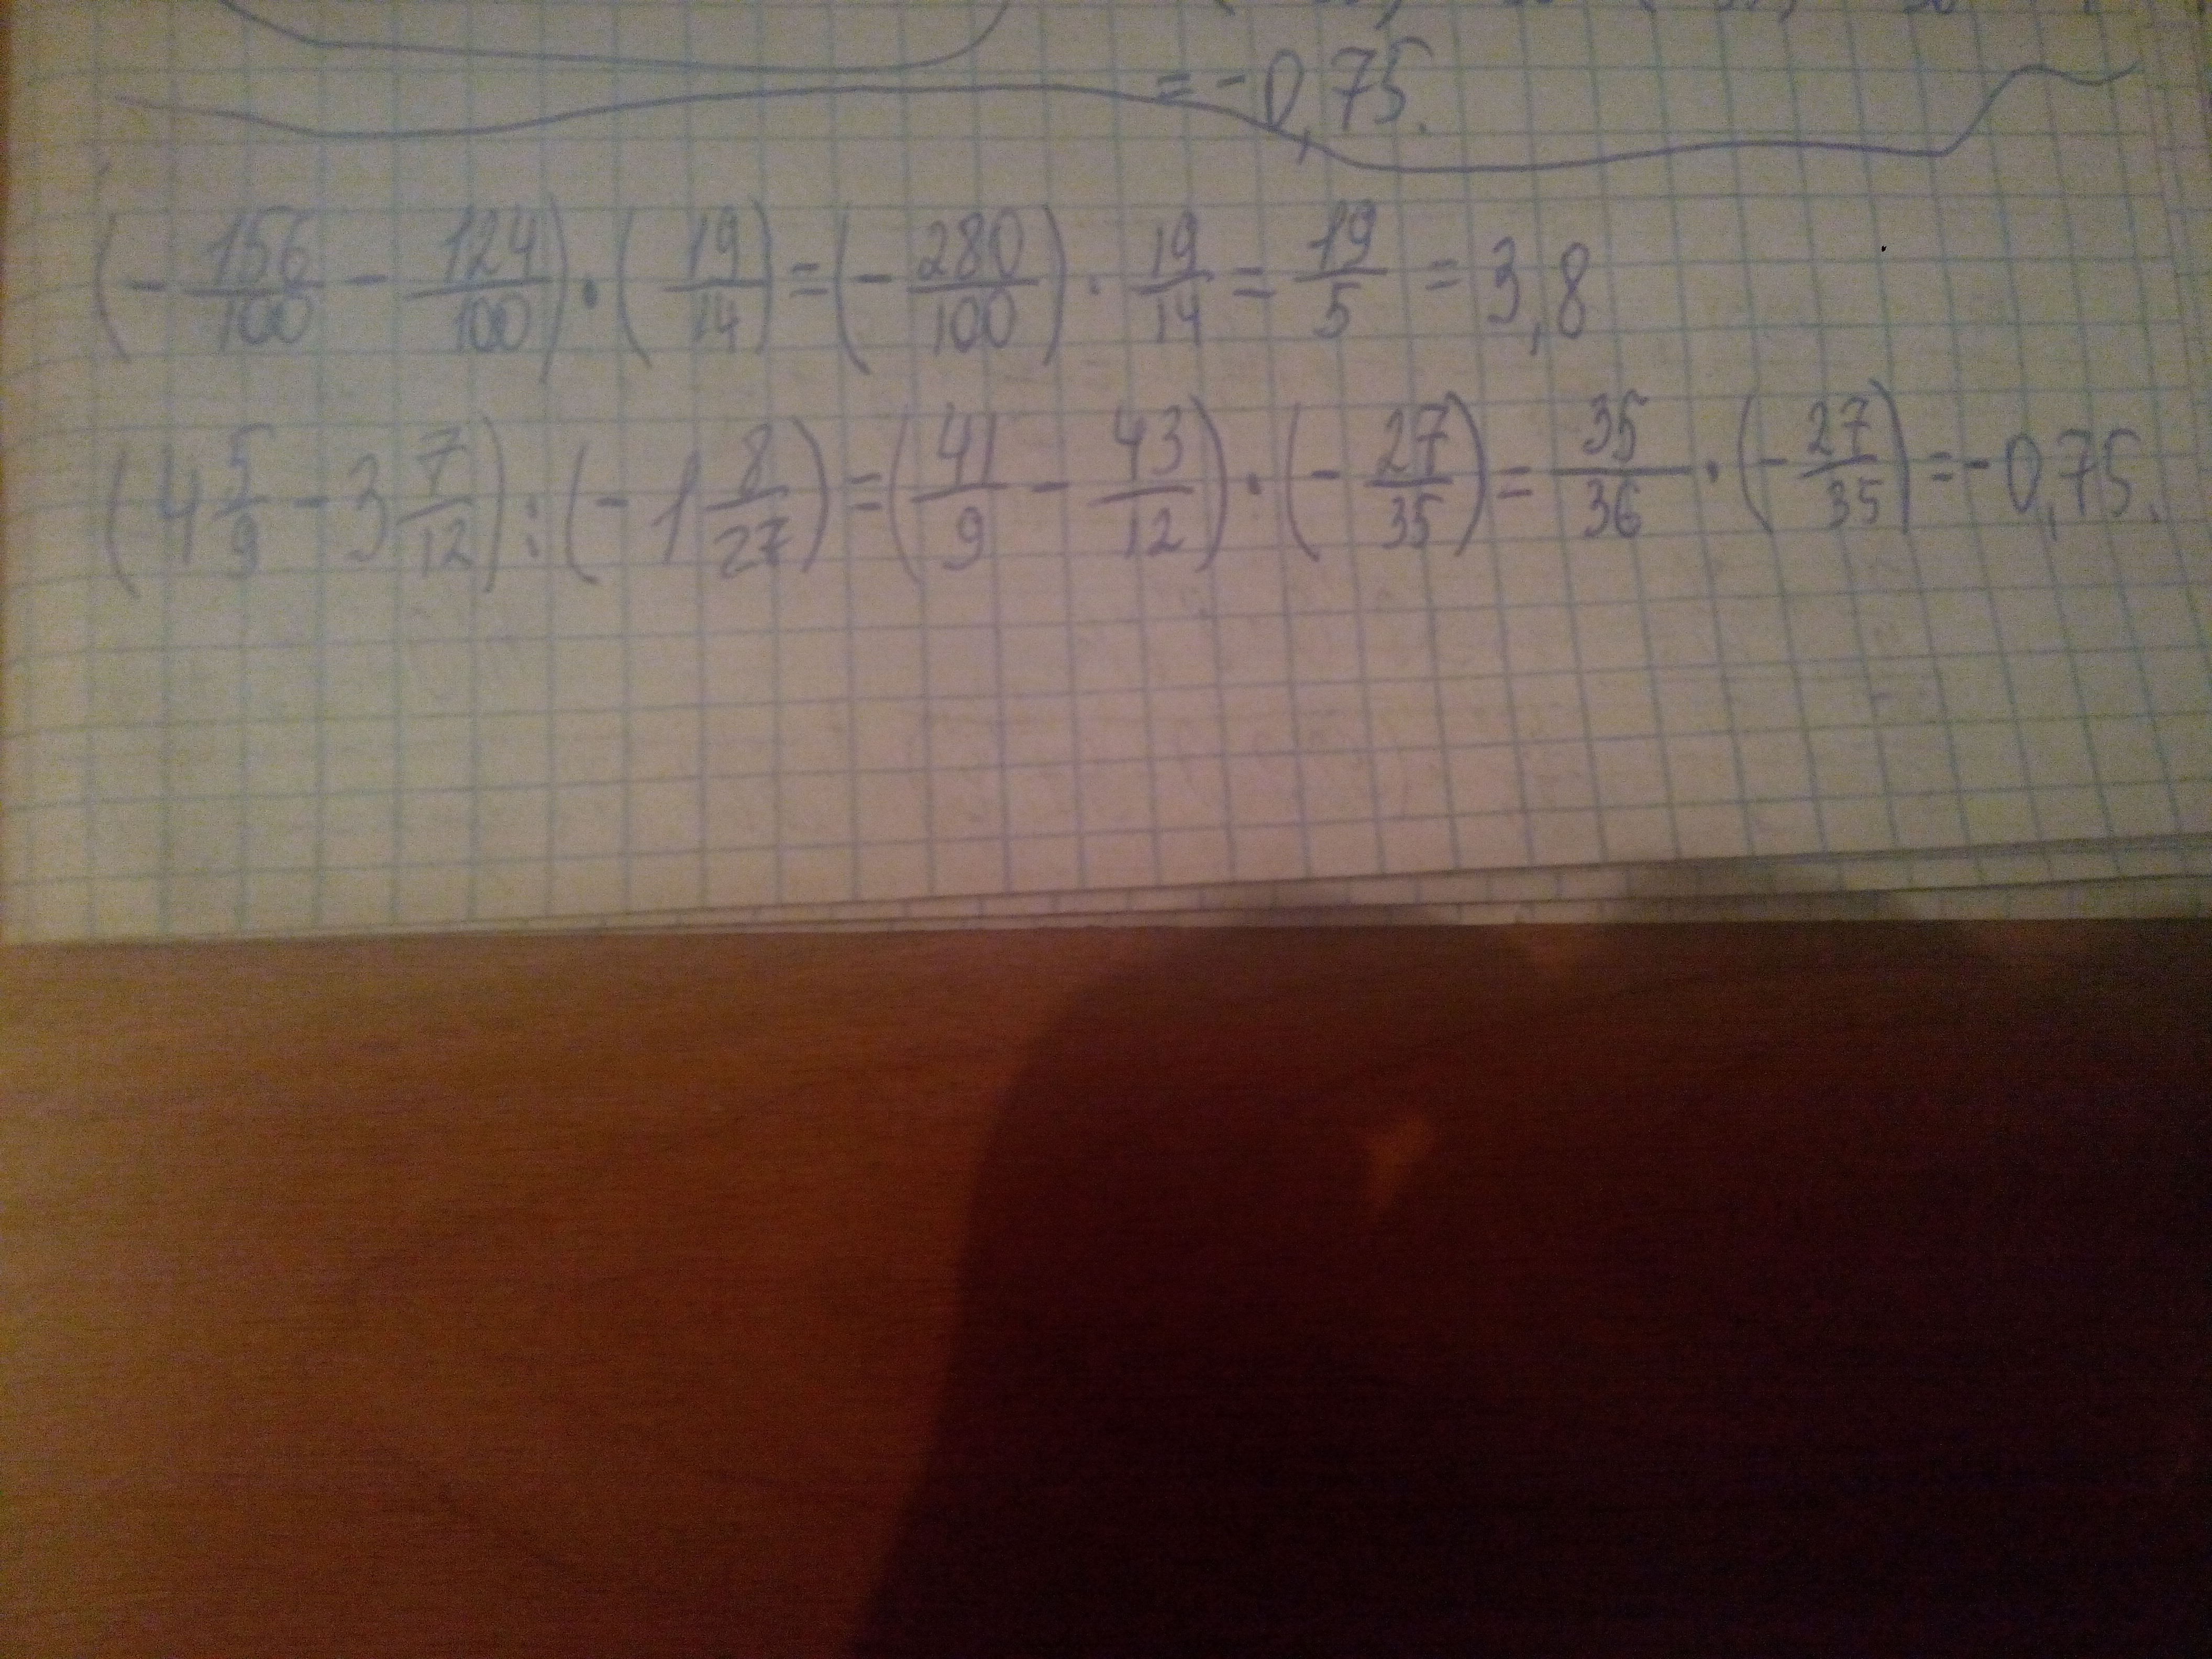 = - 0,75.
(- 156/100 - 124/100) · (19/14) = (- 280/100) · 19/14 = 19/5 = 3,8
(4 5/9 - 3 7/12) : (- 1 8/27) = (41/9 - 43/12) · (- 27/35) = 35/36 · (- 27/35) = - 0,75.